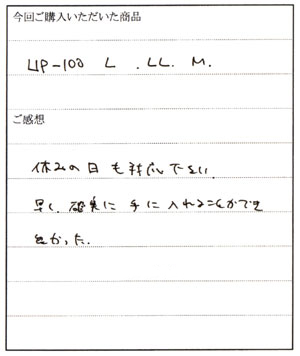 今回ご購入いただいた商品
UP-100 L . LL. M.
ご感想
休みの日も対応下さい、
早く、確実に手に入れることができ
よかった。